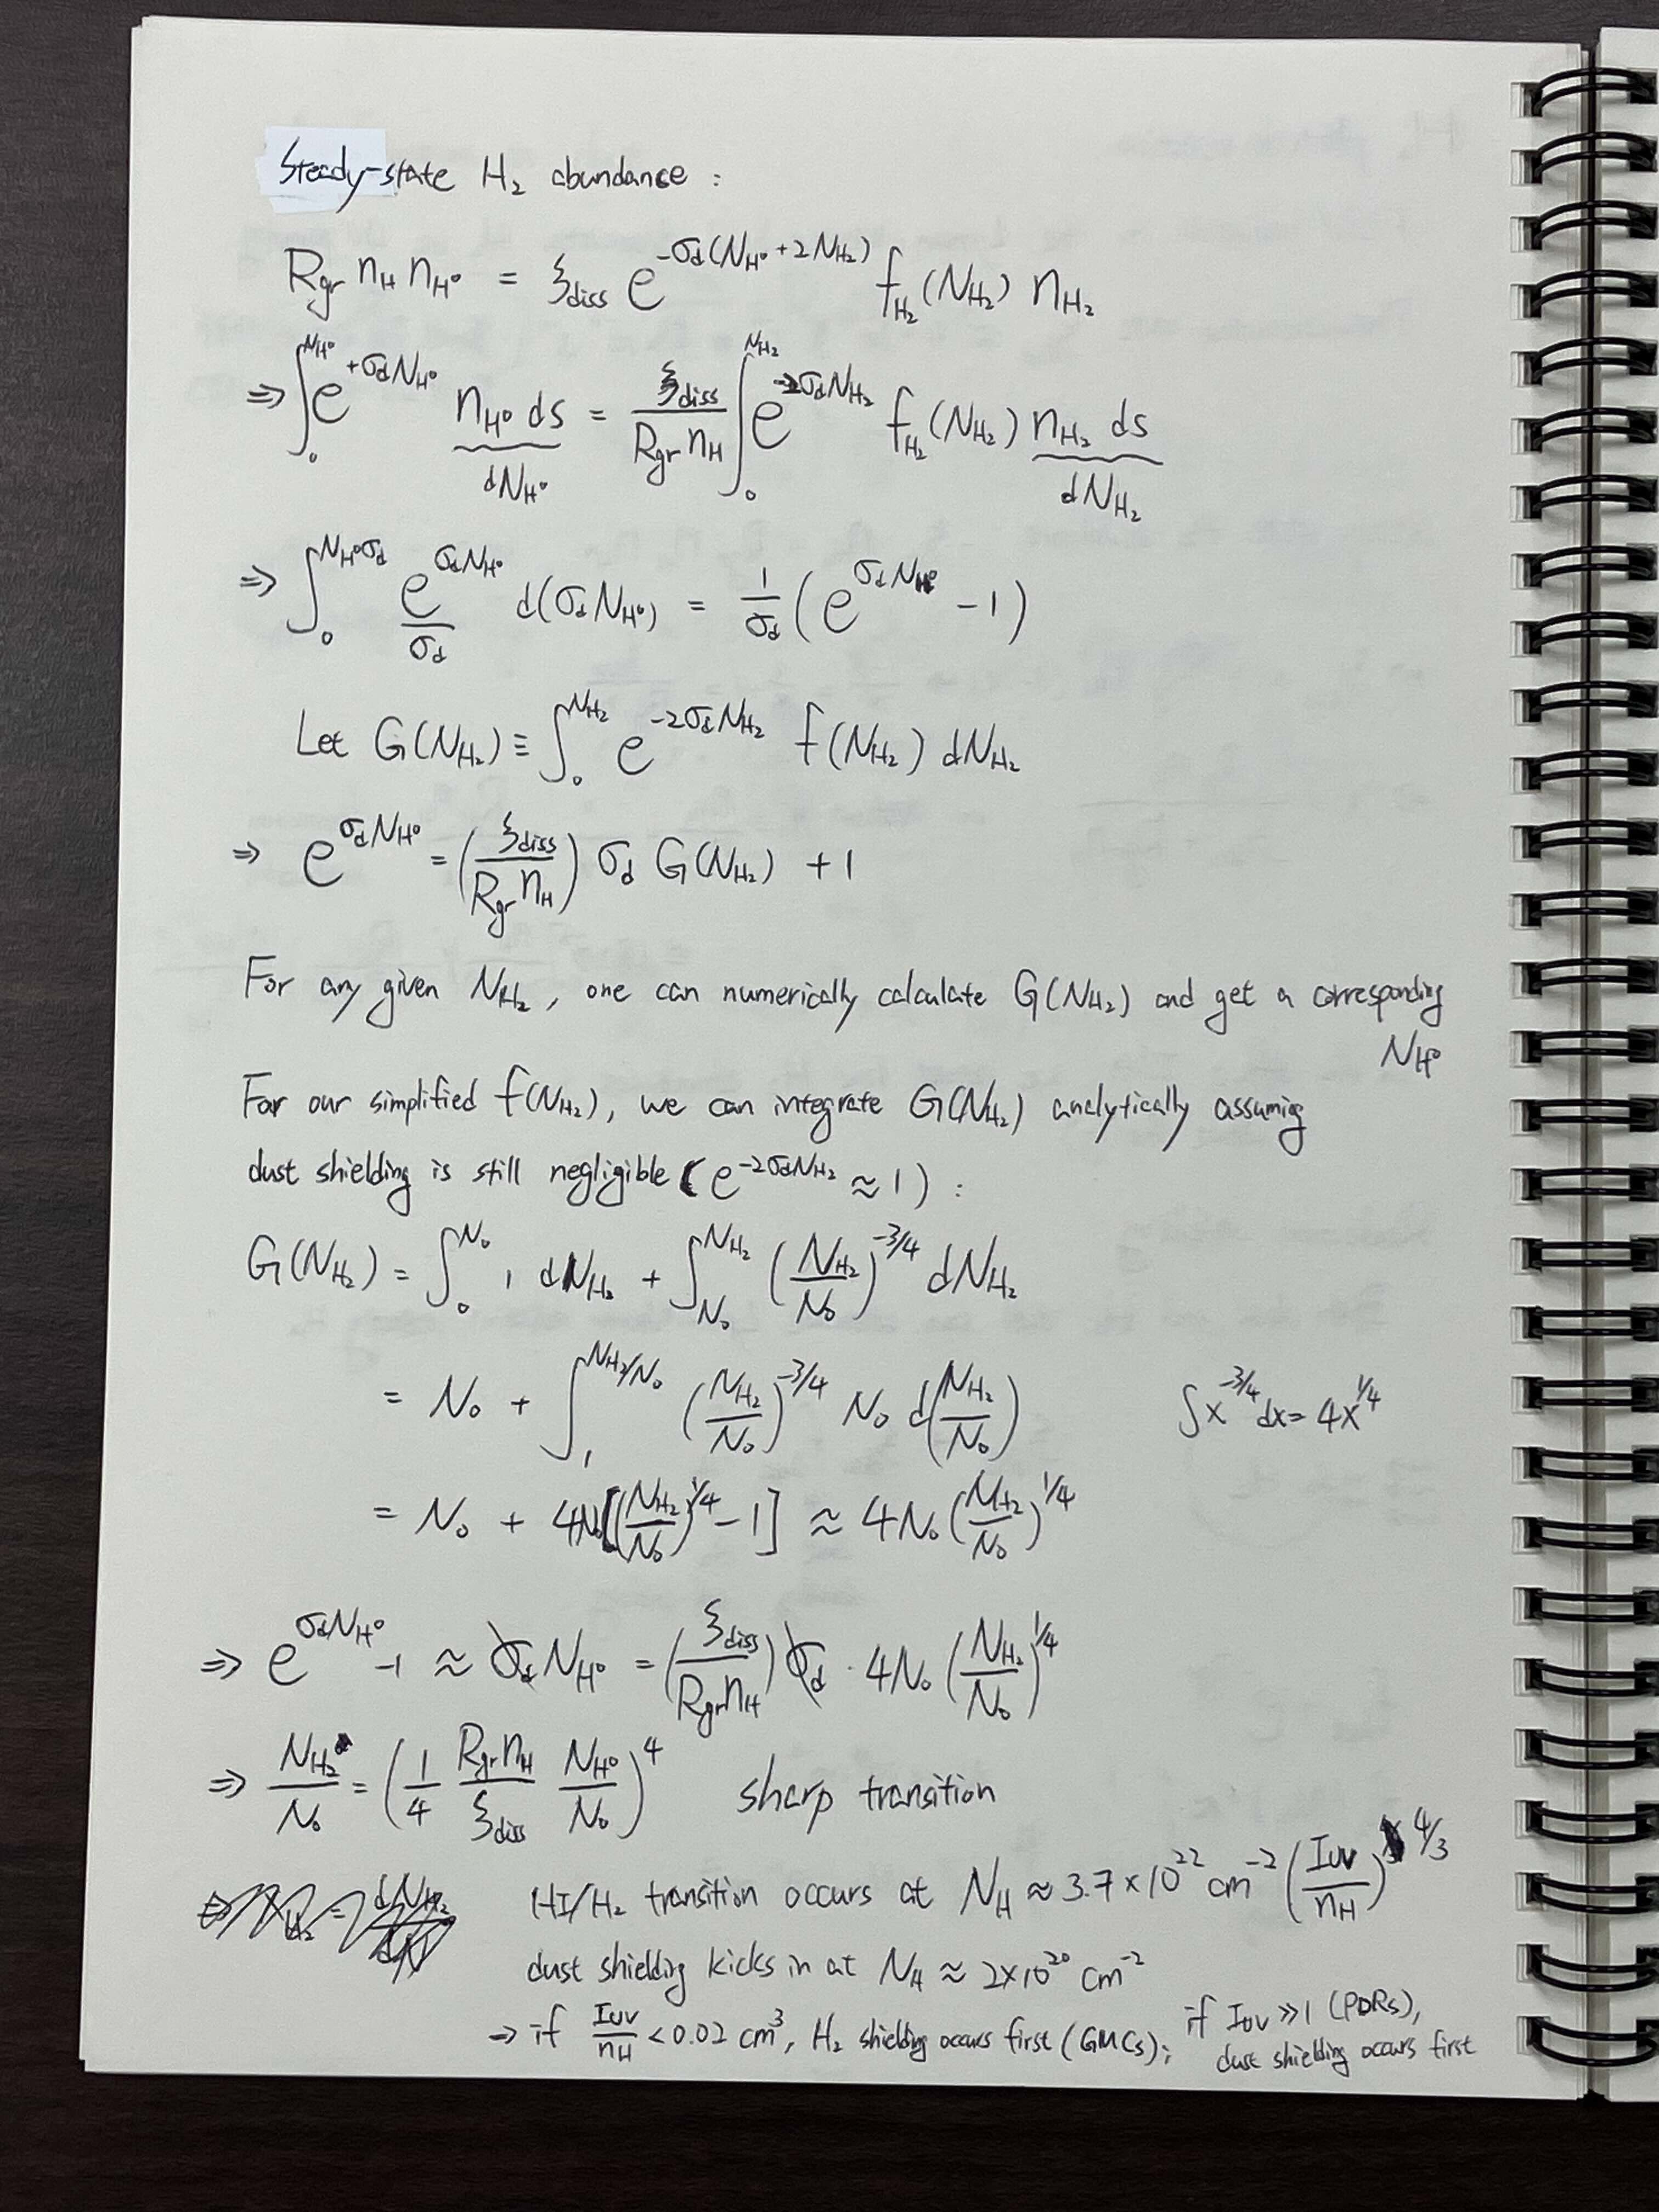 Steady-state H₂ abundance :
R_gr n_H n_H⁰ = ξ_diss e^{-σ_d(N_H⁰ + 2N_H₂)} f_H₂(N_H₂) n_H₂
⇒ ∫₀^{N_H⁰} e^{+σ_d N_H⁰} n_H⁰ ds = ξ_diss / (R_gr n_H) ∫₀^{N_H₂} e^{-2σ_d N_H₂} f_H₂(N_H₂) n_H₂ ds
dN_H⁰ dN_H₂
⇒ ∫₀^{N_H⁰σ_d} e^{σ_d N_H⁰} / σ_d d(σ_d N_H⁰) = 1/σ_d (e^{σ_d N_H⁰} - 1)
Let G(N_H₂) ≡ ∫₀^{N_H₂} e^{-2σ_d N_H₂} f(N_H₂) dN_H₂
⇒ e^{σ_d N_H⁰} = (ξ_diss / (R_gr n_H)) σ_d G(N_H₂) + 1
For any given N_H₂, one can numerically calculate G(N_H₂) and get a corresponding
N_H⁰
For our simplified f(N_H₂), we can integrate G(N_H₂) analytically assuming
dust shielding is still negligible (e^{-2σ_d N_H₂} ≈ 1) :
G(N_H₂) = ∫₀^{N₀} 1 dN_H₂ + ∫_{N₀}^{N_H₂} (N_H₂/N₀)^{-3/4} dN_H₂
= N₀ + ∫₁^{N_H₂/N₀} (N_H₂/N₀)^{-3/4} N₀ d(N_H₂/N₀) ∫x^{-3/4} dx = 4x^{1/4}
= N₀ + 4N₀[(N_H₂/N₀)^{1/4} - 1] ≈ 4N₀(N_H₂/N₀)^{1/4}
⇒ e^{σ_d N_H⁰} - 1 ≈ σ_d N_H⁰ = (ξ_diss / (R_gr n_H)) σ_d · 4N₀ (N_H₂/N₀)^{1/4}
⇒ N_H₂/N₀ = (1/4 R_gr n_H/ξ_diss N_H⁰/N₀)^4 sharp transition
HI/H₂ transition occurs at N_H ≈ 3.7 × 10^{22} cm^{-2} (I_UV/n_H)^{4/3}
dust shielding kicks in at N_H ≈ 2×10^{20} cm^{-2}
→ if I_UV/n_H < 0.02 cm³, H₂ shielding occurs first (GMCs); if I_UV ≫ 1 (PDRs),
dust shielding occurs first